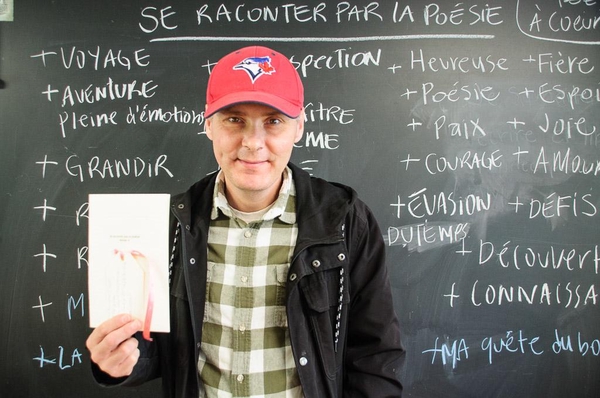 SE RACONTER PAR LA POÉSIE
À COEUR
+ VOYAGE
+ AVENTURE
pleine d'émotions
+ GRANDIR
+
+
+
+ LA
+ Heureuse
+ Poésie
+ Paix
+ COURAGE
+ ÉVASION
DU TEMPS
+ Fière
+ Espoi
+ Joie
+ AMOUR
+ DÉFIS
+ Découvert
+ CONNAISSA
+ MA quête du bo